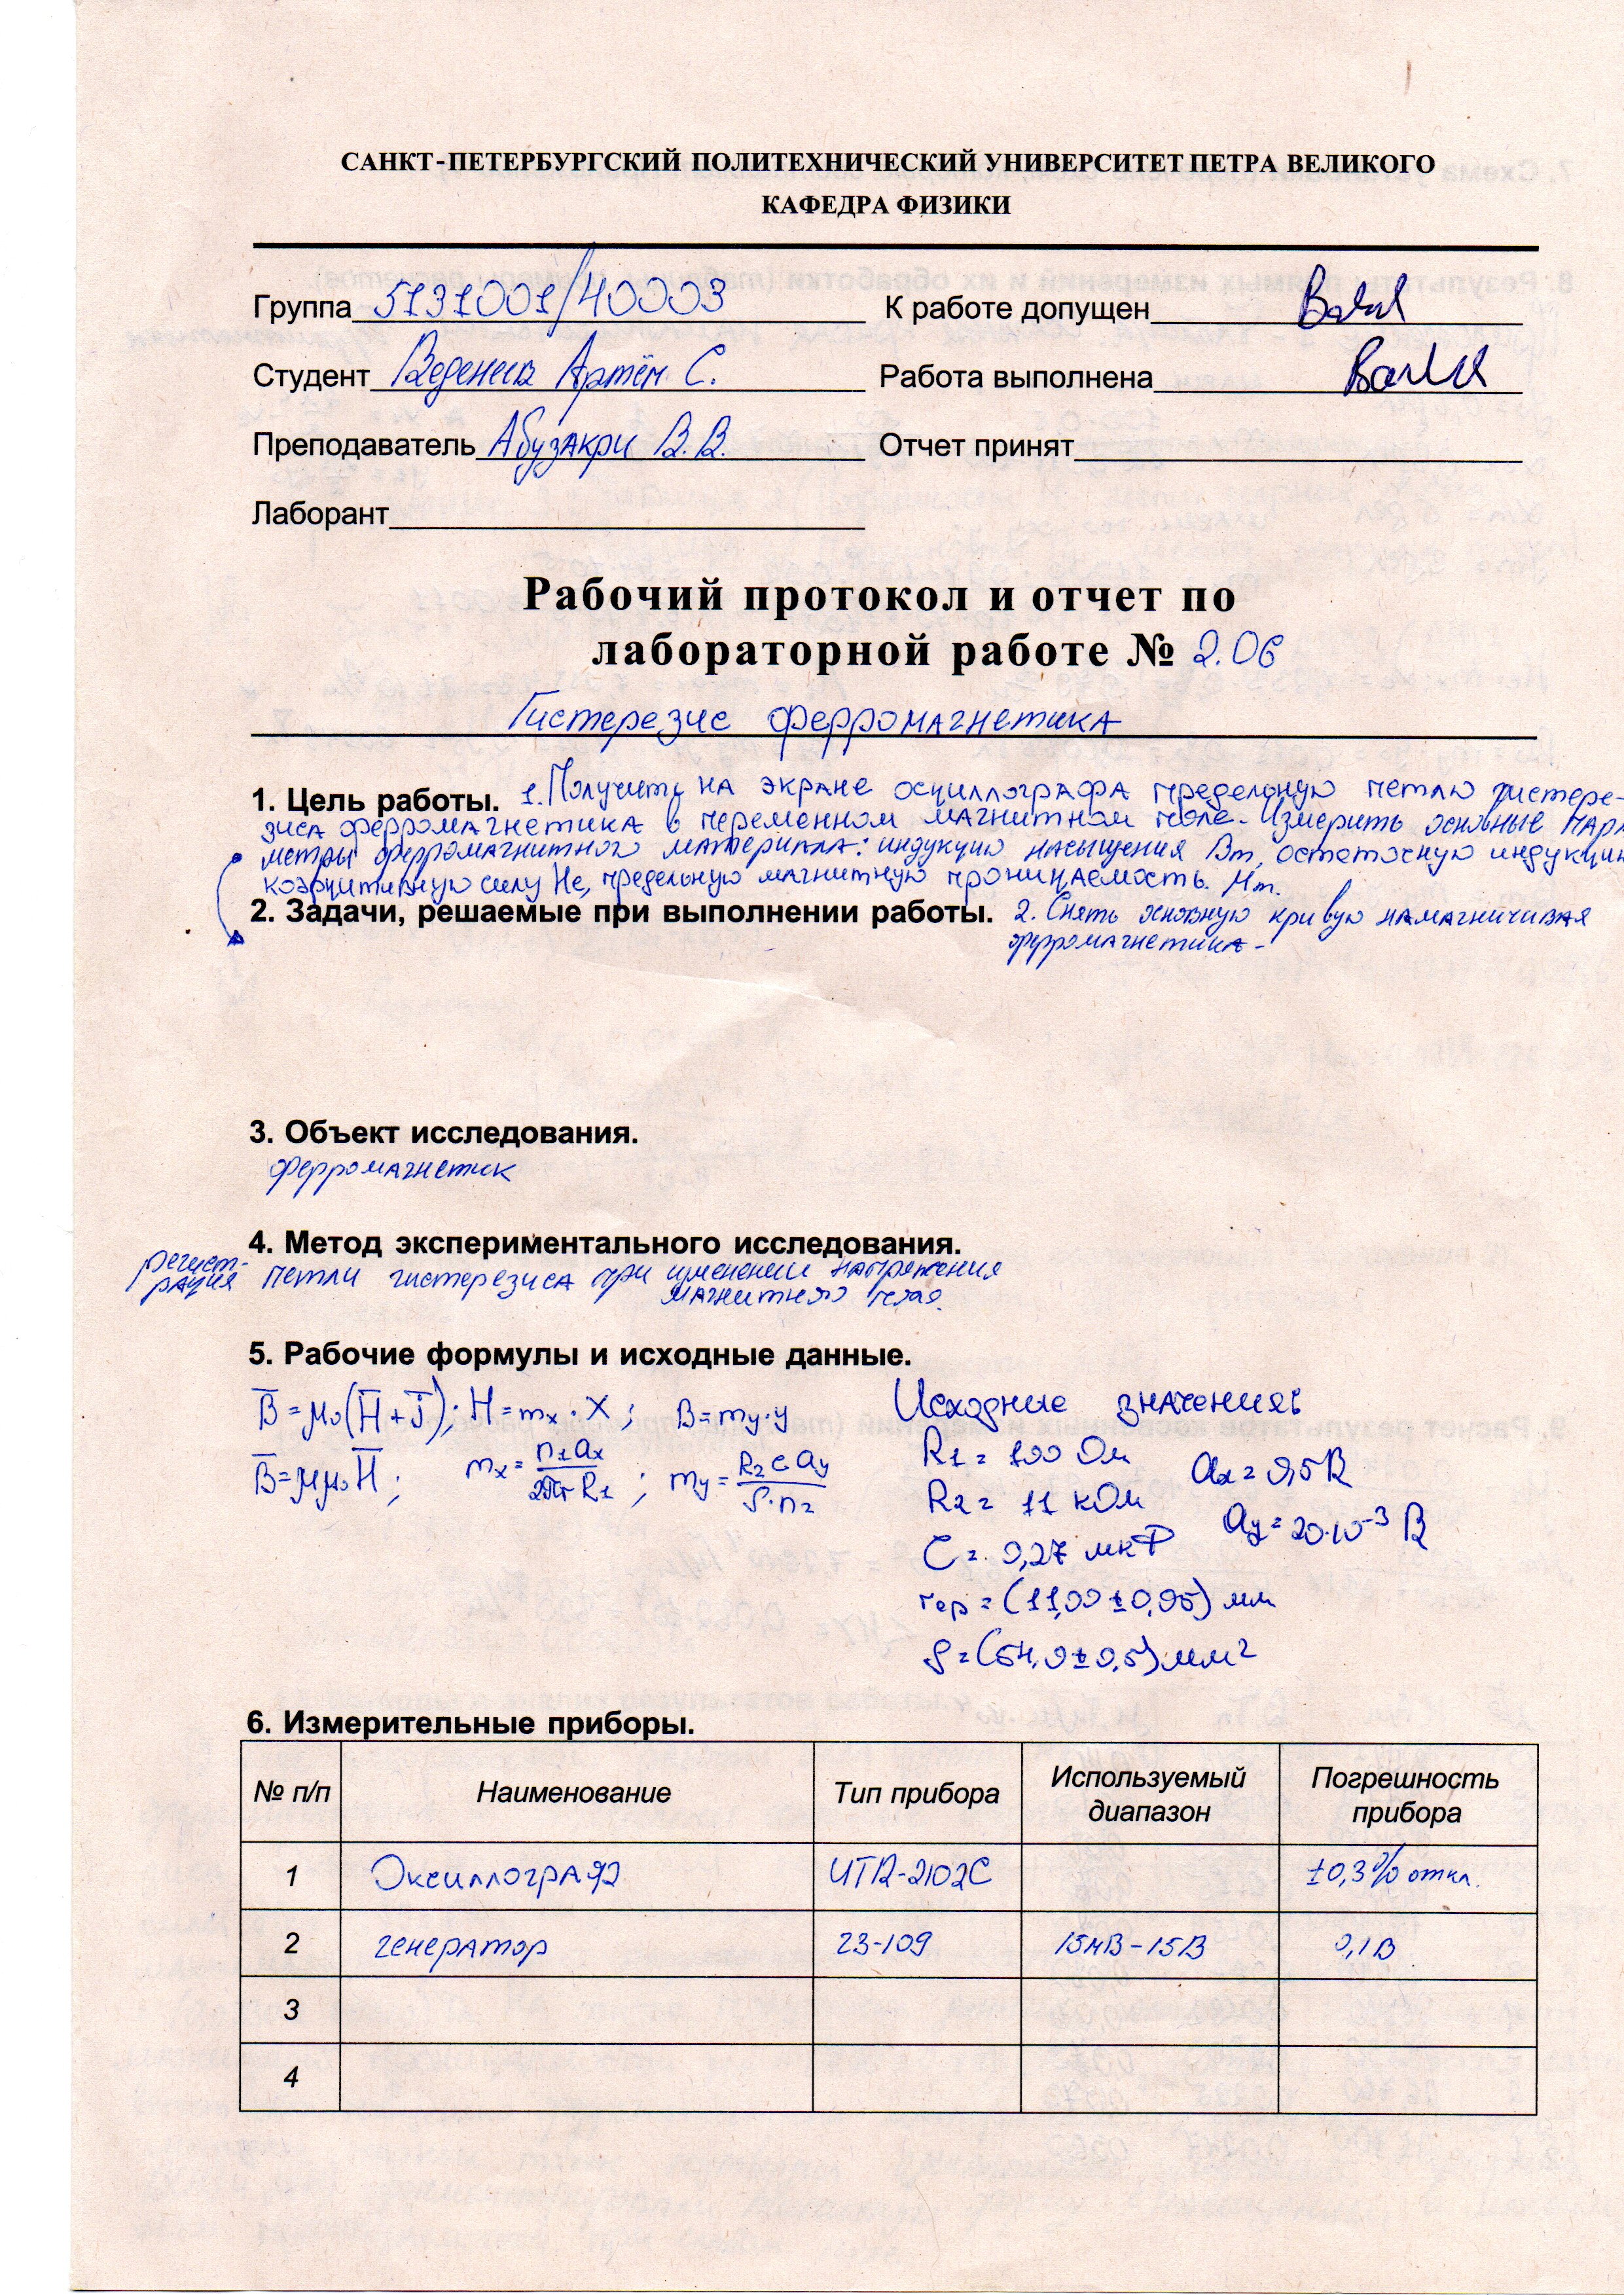 САНКТ-ПЕТЕРБУРГСКИЙ ПОЛИТЕХНИЧЕСКИЙ УНИВЕРСИТЕТ ПЕТРА ВЕЛИКОГО
КАФЕДРА ФИЗИКИ
Группа 5131001/40003 К работе допущен
Студент Артём С. Работа выполнена
Преподаватель Абузакри В.В. Отчет принят
Лаборант
Рабочий протокол и отчет по
лабораторной работе № 2.06
Гистерезис ферромагнетика
1. Цель работы. 1. Получить на экране осциллографа предельную петлю гистере-
зиса ферромагнетика в переменном магнитном поле. Измерить основные пара
метры ферромагнитного материала: индукцию насыщения Bm, остаточную индукцию
коэрцитивную силу Hc, предельную магнитную проницаемость Mm.
2. Задачи, решаемые при выполнении работы. 2. Снять основную кривую намагничивая
ферромагнетика.
3. Объект исследования.
ферромагнетик
4. Метод экспериментального исследования.
регист-
рация петли гистерезиса при изменении напряжения
магнитного поля.
5. Рабочие формулы и исходные данные.
B̅ = μ₀(H̅ + J̅); H = mx · X; B = my · y
B̅ = μμ₀H̅; mx = n1ax / 2πr R1; my = R2 c ay / S · n2
Исходные значения:
R1 = 100 Ом
R2 = 11 кОм
C = 0,27 мкФ
rср = (11,00 ± 0,05) мм
S = (54,0 ± 0,5) мм²
ax = 0,5 В
ay = 20·10⁻³ В
6. Измерительные приборы.
№ п/п Наименование Тип прибора Используемый диапазон Погрешность прибора
1 Оксиллограф ИТВ-2102С ±0,3% откл.
2 генератор Г3-109 15мВ – 15В 0,1 В
3
4